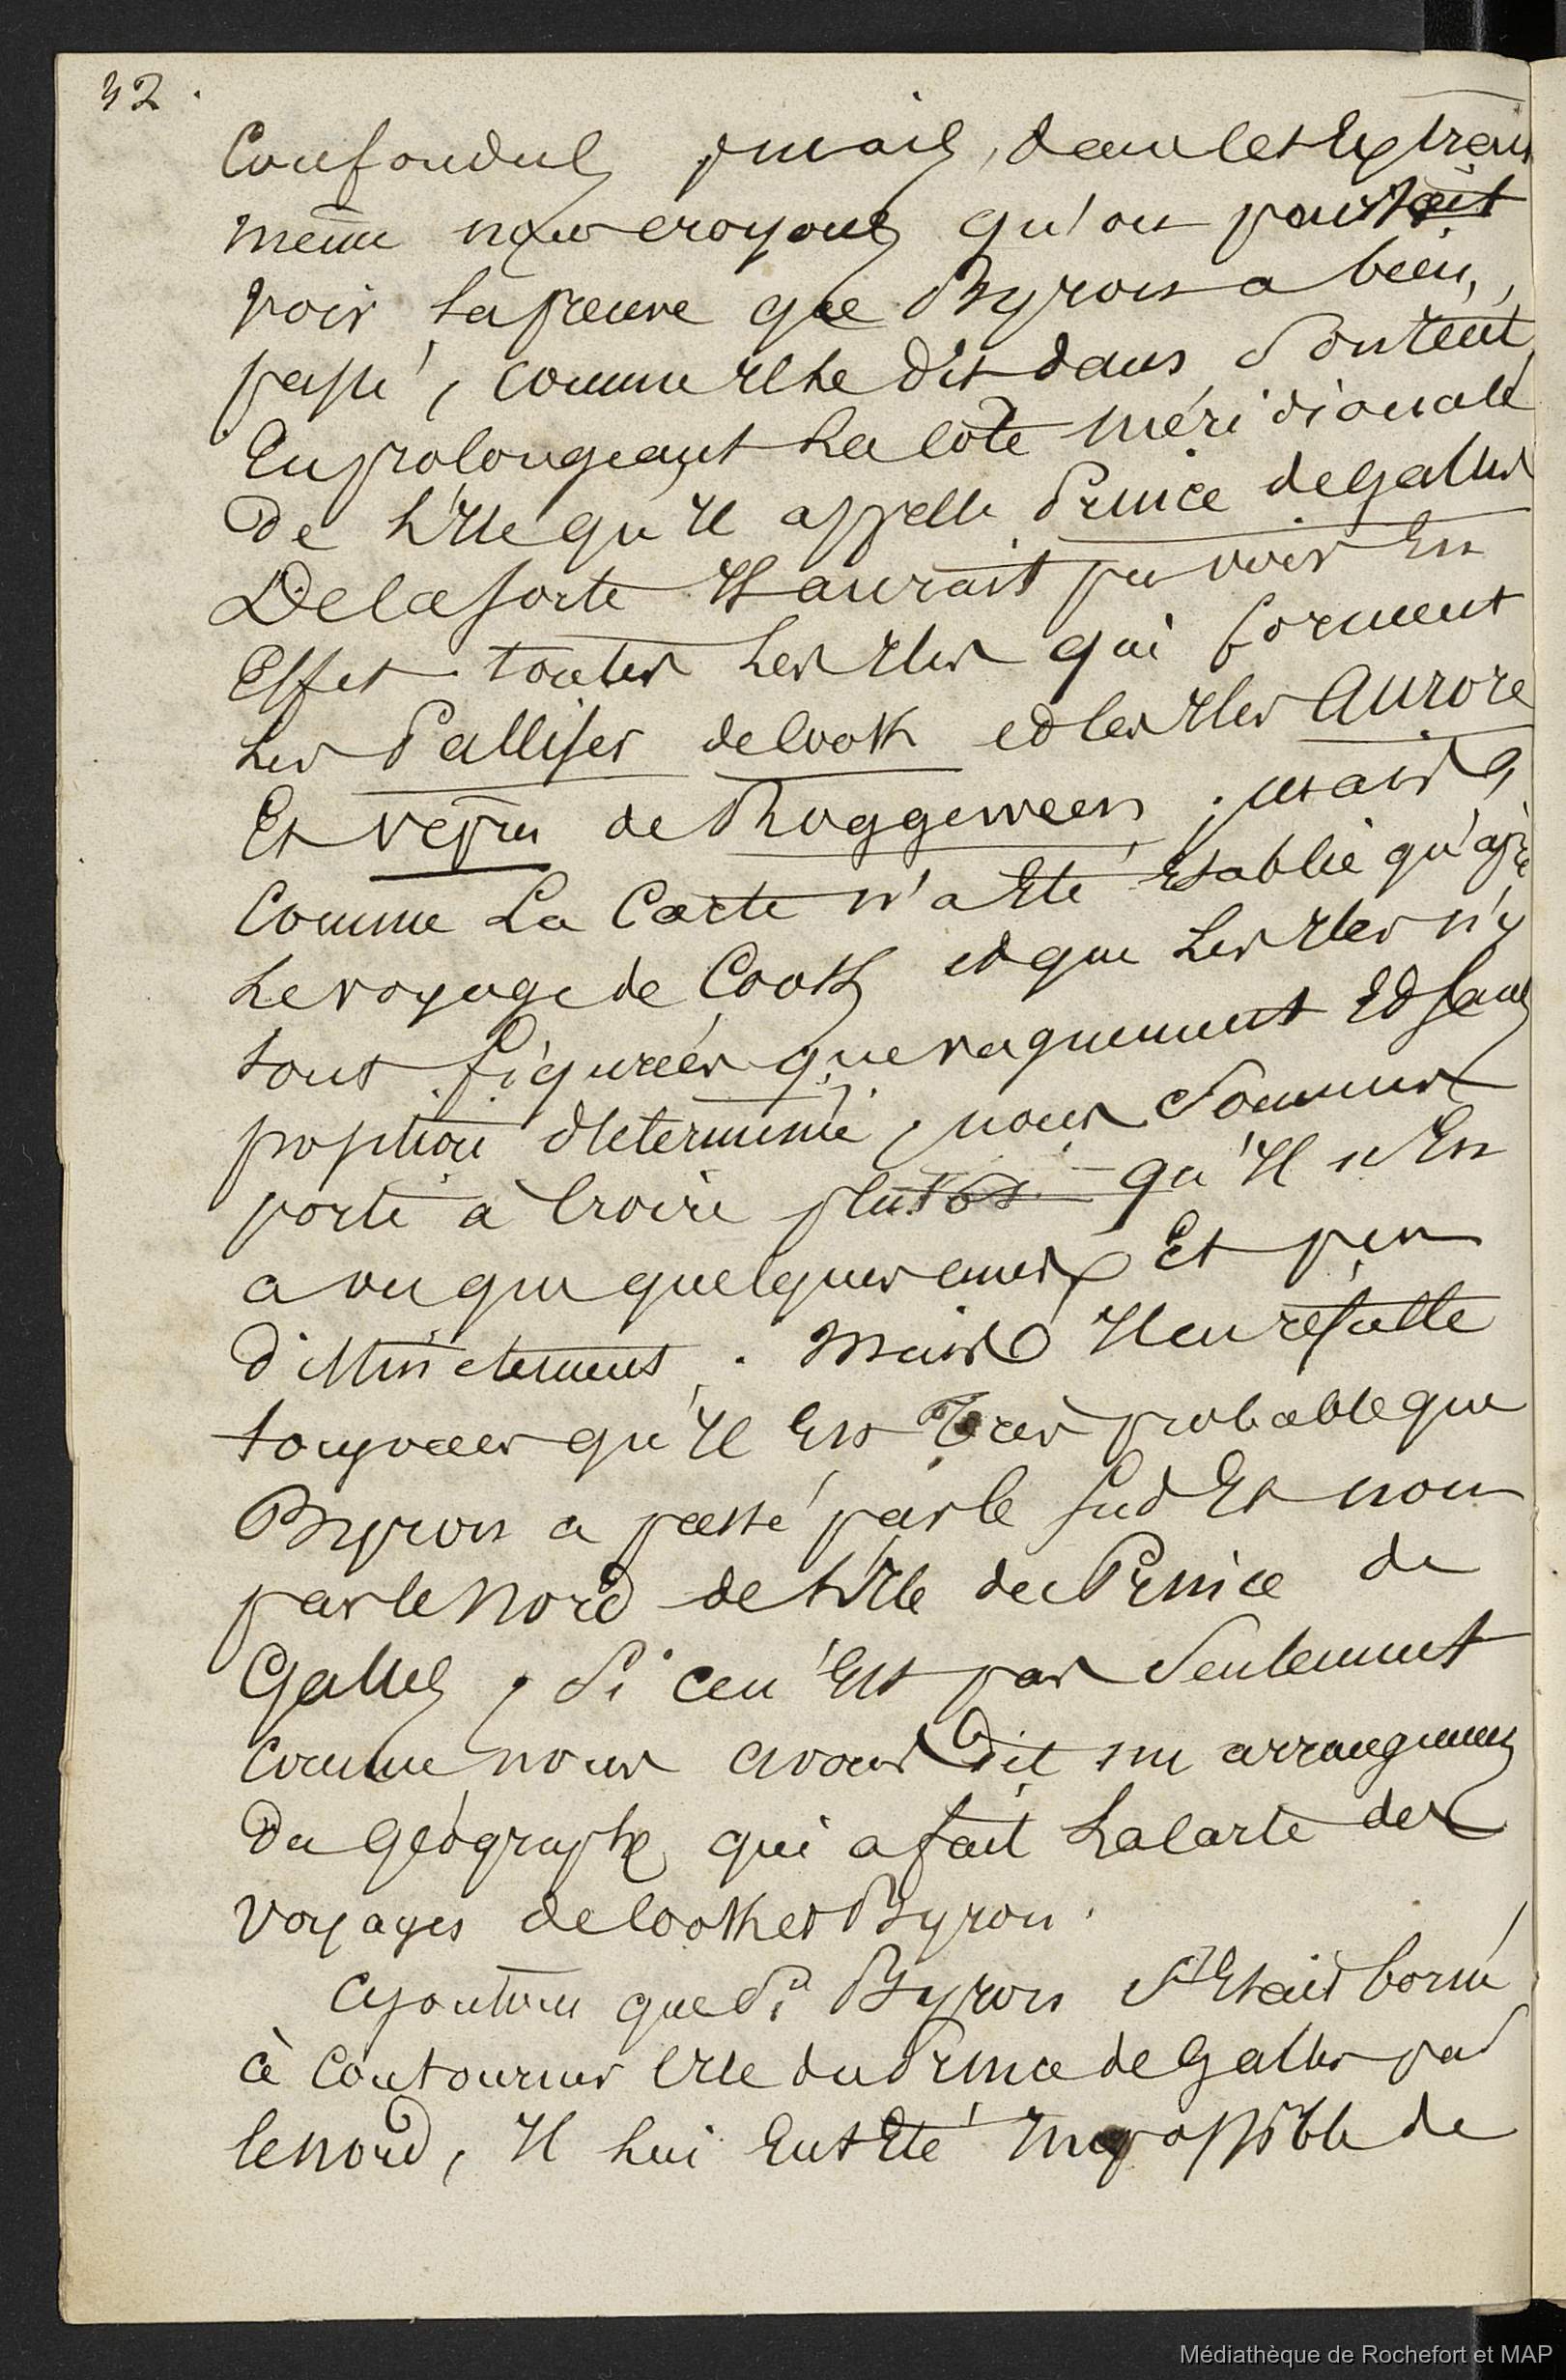 32.
Confondues, mais, dans les Extraits
même nous croyons qu'on pourrait
voir la preuve que Byron a bien,
passé, comme Il le dit dans son texte,
En prolongeant La Côte méridionale
De L'Ile qu'Il appelle Prince de Galles
De la sorte Il aurait pu voir En
Effet toutes Les Iles qui forment
Les Palliser de Cook et les Iles Aurore
Et vepres de Roggeween; mais
Comme La Carte n'a Eté Etablie qu'après
Le voyage de Cook et que Les Iles n'y
sont figurées que vaguement Et sans
position déterminée, nous Sommes
porté à Croire plutôt qu'Il n'En
a vu que quelques unes Et peu
distinctement. Mais Il en résulte
toujours qu'Il Est Très probable que
Byron a passé par le Sud Et non
par le Nord de L'Ile du Prince de
Galles, Si ce n'Est pas Seulement
Comme nous avons dit un arrangement
Du Géographe qui a fait La Carte des
voyages de Cook et Byron.
Ajoutons que Si Byron S'Etait borné
à Contourner l'Ile du Prince de Galles par
le nord, Il Lui Eut Eté Impossible de
Médiathèque de Rochefort et MAP